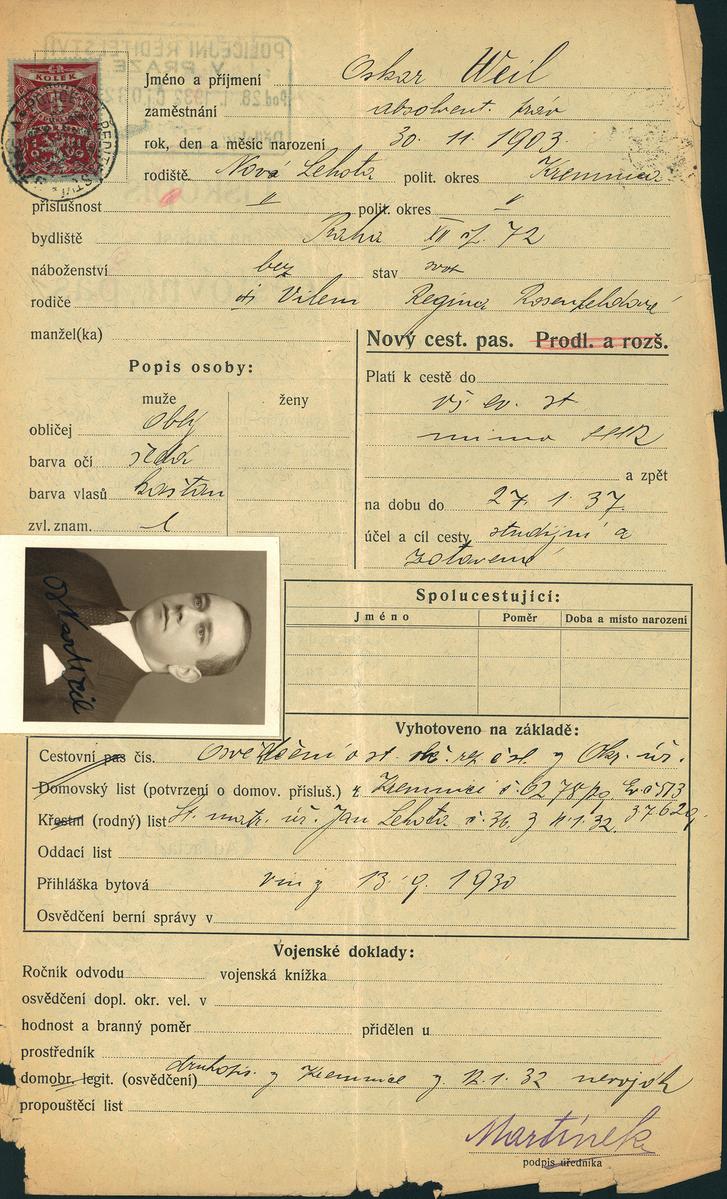 KOLEK
Jméno a příjmení Oskar Weil
zaměstnání absolvent. práv
rok, den a měsíc narození 30. 11. 1903.
rodiště Nová Lehota polit. okres Kremnica
příslušnost " polit. okres "
bydliště Praha XII čp. 72
náboženství bez stav svob
rodiče Vilem Regina Rosenfeldové
manžel(ka)
Nový cest. pas. Prodl. a rozš.
Popis osoby:
muže ženy
obličej oblý
barva očí šedá
barva vlasů kaštan
zvl. znam.
Platí k cestě do
vš ev. st
mimo SSSR
a zpět
na dobu do 27. 1. 37.
účel a cíl cesty studijní a
zotavení
Oskar Weil
Spolucestující:
Jméno Poměr Doba a místo narození
Vyhotoveno na základě:
Cestovní pas čís. Osvědčení o st. obč. rep. čsl. z Okr. úř.
Domovský list (potvrzení o domov. přísluš.) z Kremnici č. 6278/
Křestní (rodný) list St. matr. úř. Jan. Lehota č. 36. z 11. 1. 32.
Oddací list
Přihláška bytová 13. 9. 1930
Osvědčení berní správy v
Vojenské doklady:
Ročník odvodu vojenská knížka
osvědčení dopl. okr. vel. v
hodnost a branný poměr přidělen u
prostředník
domobr. legit. (osvědčení) druhopis. z Kremnice z 12. 1. 32 nevoják
propouštěcí list
Martínek
podpis úředníka